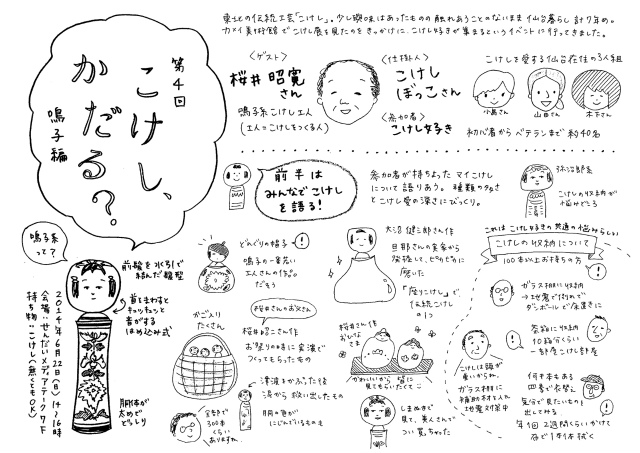 東北の伝統工芸「こけし」。少し興味はあったものの触れあうことのないまま仙台暮らし計7年め。
カメイ美術館でこけし展を見たのをきっかけに、こけし好きが集まるというイベントに行ってきました。
第4回
こけし、
かだる？
鳴子編
〈ゲスト〉
桜井昭寛
さん
鳴子系こけし工人
(工人=こけしをつくる人)
〈仕掛人〉
こけし
ぼっこさん
〈参加者〉
こけし好き
こけしを愛する仙台在住の3人組
小島さん
山田さん
木下さん
初心者からベテランまで約40名
前半は
みんなでこけし
を語る！
参加者が持ちよったマイこけし
について語りあう。種類の多さ
とこけし愛の深さにびっくり。
弥治郎系
こけしの収納が
悩みどころ
鳴子系
って？
前髪を水引で
結んだ髪型
首をまわすと
キュッキュッと
音がする
はめ込み式
胴体が
太めで
どっしり
2014年6月22日(日)14〜16時
会場：せんだいメディアテーク7F
持ち物：こけし(無くてもOK)
どんぐりの帽子
鳴子の一番若い
工人さんの作品。
だそう
桜井さんのお父さん
かご入り
たくさん
桜井昭二さん作
お祭りの時に実演で
つくってもらったもの
津波をかぶった後
泥から救い出したもの
胴の色が
にじんでいるものも
全部で
300本
くらい
ありますね
大沼健三郎さん作
旦那さんの実家から
発掘して、ピカピカに
磨いた
「座りこけし」で
伝統こけし
の1つ
桜井さん作
おひな
さま
かわいいから皆に
見てもらいたくて
しまぬきで
見て、美人さんで
つい買っちゃった
これはこけし好きの共通の悩みらしい
こけしの収納について
100本以上お持ちの方
ガラス棚に収納
→地震で倒れて
ダンボールで座置きに
茶箱に収納
10箱分くらい
一部屋こけし部屋
こけしは頭が
重いからね。
ガラス棚に
補助材を入れ
地震対策中
何千本もある
四季で衣替え
気分で見たいものを
出してみる
年1回2週間くらいかけて
布で1本1本拭く